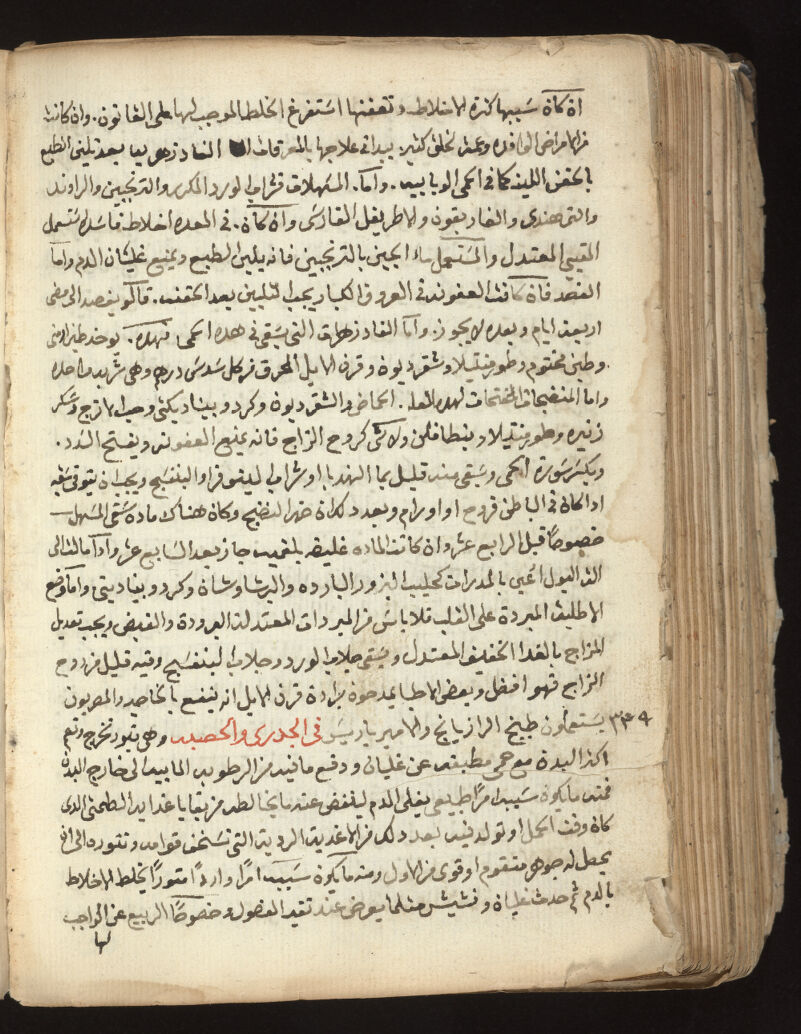 ان كان سببها كثرة الاخلاط وتعفنها استفرغ الخلط الموجب لها على القانون. وان كانت
من الامراض الوافده وعمت لخلق كثير يبدا في علاجها بالمعرقات الفادزهريه بعد تليين الطبع
بالحقن اللينه كما في الحمى الوبايية. واما المسهلات فشراب الورد المكرر والترنجبين والراوند
والتمر هندي والغاريقون والاطريفل الفارسي وان كان في المعده اخلاط فاسده استعمل
المقيي المعتدل والمستعمل ماء الجبن بالترنجبين فانه يلين الطبع ويمنع غليان الدم واما
الفصد فان كانت العفونه في العروق الكبار يجب التليين بعد الحقنه. فالكو يفصد الى مضى
اربعة ايام وبعده لا يجوز. واما الفادزهرات التي يسقى في هده الحمى فهده. يوخد طين ارمني
وطين مختوم وطورمنتيلا وشقرديون وقرن الايل المحرق من كل سدسي درهم وهي شربه واحده
واما المنضجات المفتحات لهده العله. الحماض والشقرديون وكردوبيناديكتى وحب الاترج وعسكر
زنيره وطورمنتيلا وبنطافلن ولا شى كروح الزاج فانه يمنع العفونه ويفتح السدد.
ويكسر سورة الحمى ويسقى منه قليل بما الهندبا او شراب الينوفر او البنفسج ويجب ان يتوقى سقيه
ادا كان في الباطن قروح او اورام وبعد دلك ان ظهر النضج وكان هناك ماده سقى المسهل
خصوصا قبل الرابع عشر وان كانت الماده غليضه بلغميه جاز بعد السابع عشر وادا مالت الى
الات البول اعين بالمدرات كحليب البزور البارده والبرشاوشان وكردوبيناديتى واما وضع
الاطلية المبردة على القلب فلا باس من المبردات المعتدلة البرودة والقبض ويجب تعديل
المزاج بالغدا الخفيف المعتدل ويسقى جلاب الورد وجلاب البنفسج وفيه قليل من روح
الزاج فهو افضل وبعض الاطبا يمدحون برادة قرن الايل انه ينفع بالخاصيه والمصريون
٣٣٩ يستعملون طبيخ الرازيانج والامير باريس في الجدرى والحصبه وهي بثور تخرج وتعم
اكثر البدن مع حمى مطبقه عن غليان ودفع ما فيه من الرطوبه المايية الى خارج البدن
فمنه ما يكون سببه امرا طبيعي يغلى الدم لينفض عنه ما يخالطه من بقايا غدايه الطمثي الدى
كان وقت الحمل او تولد فيه بعد دلك من الاغدية الردية التي تسخف قوامه وتثوره الى ان
يحصل له جوهر متقوم اوقوى من الاول ومنه ما يكون سببه امرا واردا مثورا يخلط الاخلاط
بالدم ثم حدث غليان ونشيش مثلما يعرض عند تغير الفصول وخصوصا الربيع عن الواجب
لها